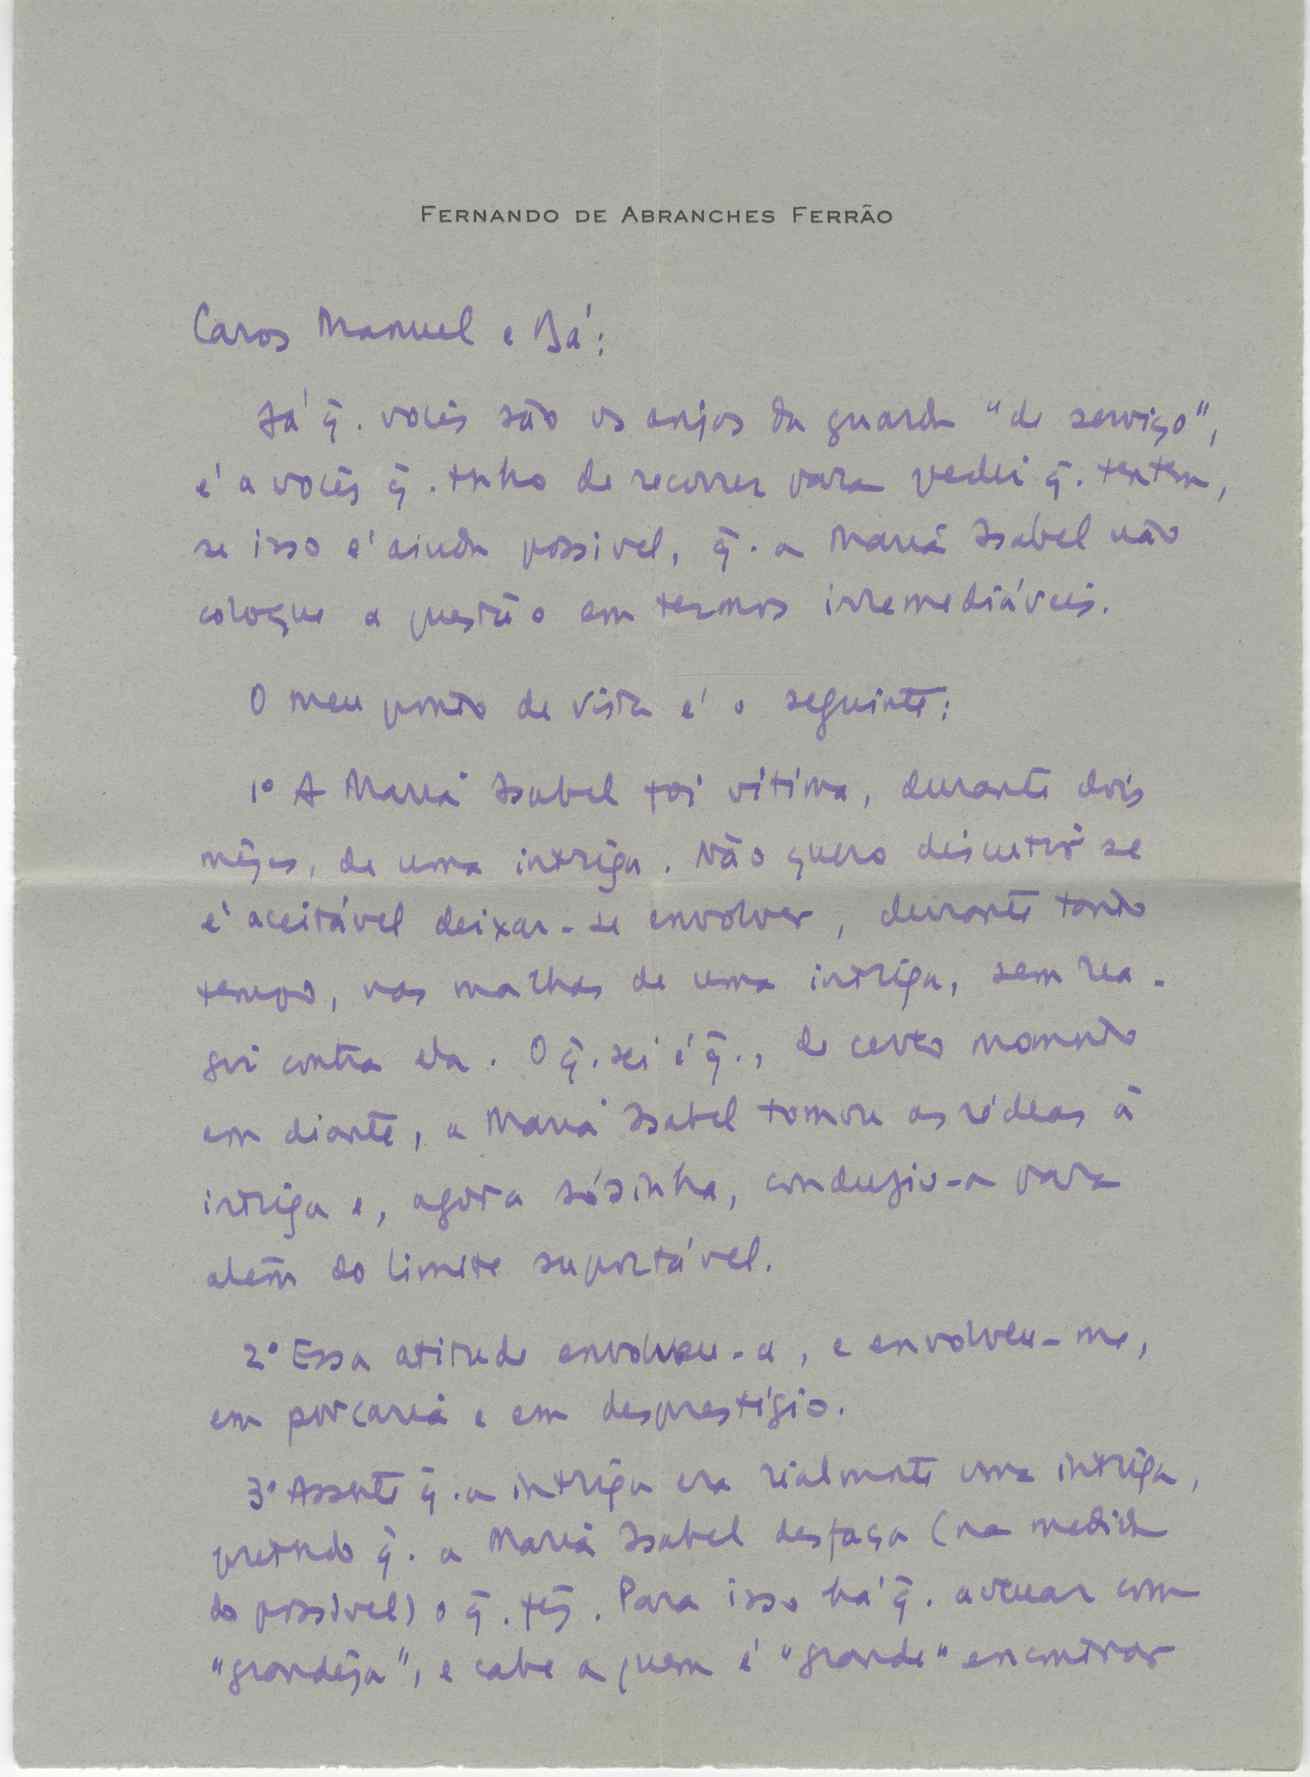 FERNANDO DE ABRANCHES FERRÃO
Caros Manuel e Bá:
Já q̃. vocês são os anjos da guarda "de serviço",
é a vocês q̃. tenho de recorrer para pedir q̃. tentem,
se isso é ainda possivel, q̃. a Maria Isabel não
coloque a questão em termos irremediáveis.
O meu ponto de vista é o seguinte:
1º A Maria Isabel foi vítima, durante dois
mêses, de uma intriga. Não quero discutir se
é aceitável deixar-se envolver, durante tanto
tempo, nas malhas de uma intriga, sem rea-
gir contra ela. O q̃. sei é q̃., de certo momento
em diante, a Maria Isabel tomou as rédeas à
intriga e, agora sósinha, conduziu-a para
além do limite suportável.
2º Essa atitude envolveu-a, e envolveu-me,
em porcaria e em desprestígio.
3º Assente q̃. a intriga era rialmente uma intriga,
pretendo q̃. a Maria Isabel desfaça (na medida
do possível) o q̃. fez. Para isso há q̃. actuar com
"grandeza", e cabe a quem é "grande" encontrar